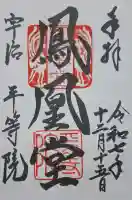 奉拝
令和七年
十一月十五日
鳳凰堂
宇治
平等院